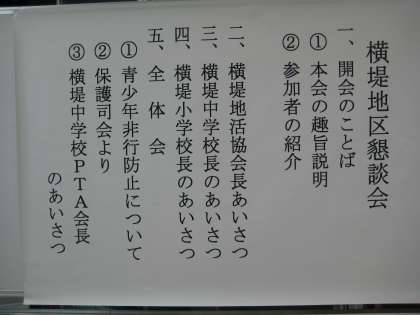 横堤地区懇談会
一、開会のことば
① 本会の趣旨説明
② 参加者の紹介
二、横堤地活協会長あいさつ
三、横堤中学校長のあいさつ
四、横堤小学校長のあいさつ
五、全体会
① 青少年非行防止について
② 保護司会より
③ 横堤中学校PTA会長
のあいさつ